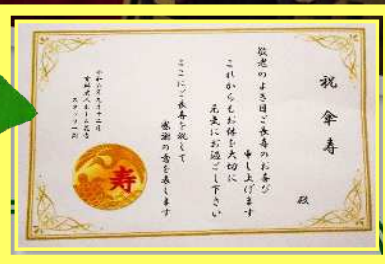 祝 傘寿
殿
敬老のよき日ご長寿のお喜び
申し上げます
これからもお体を大切に
元気にお過ごし下さい
ここにご長寿を祝して
感謝の意を表します
スタッフ一同
寿